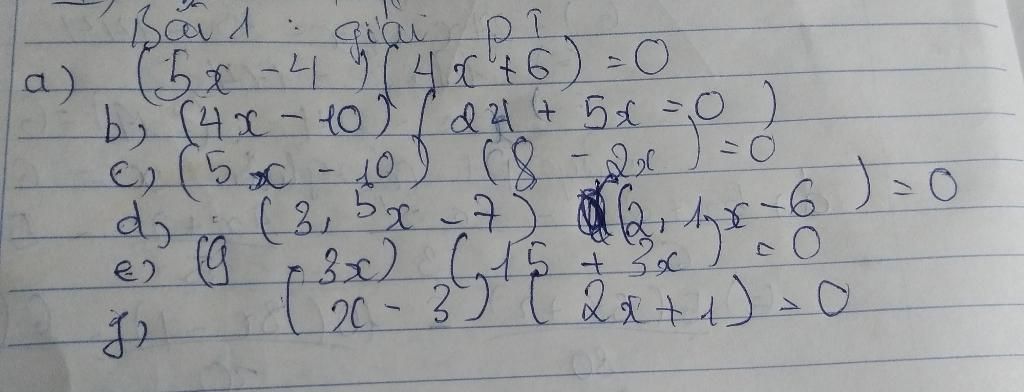 Bài 1 : giải PT
a) (5x - 4)(4x + 6) = 0
b, (4x - 10)(24 + 5x = 0)
c, (5x - 10) (8 - 2x) = 0
d, (3,5x - 7) (2,1x - 6) = 0
e) (9 - 3x) (15 + 3x) = 0
g, (x - 3) (2x + 1) = 0